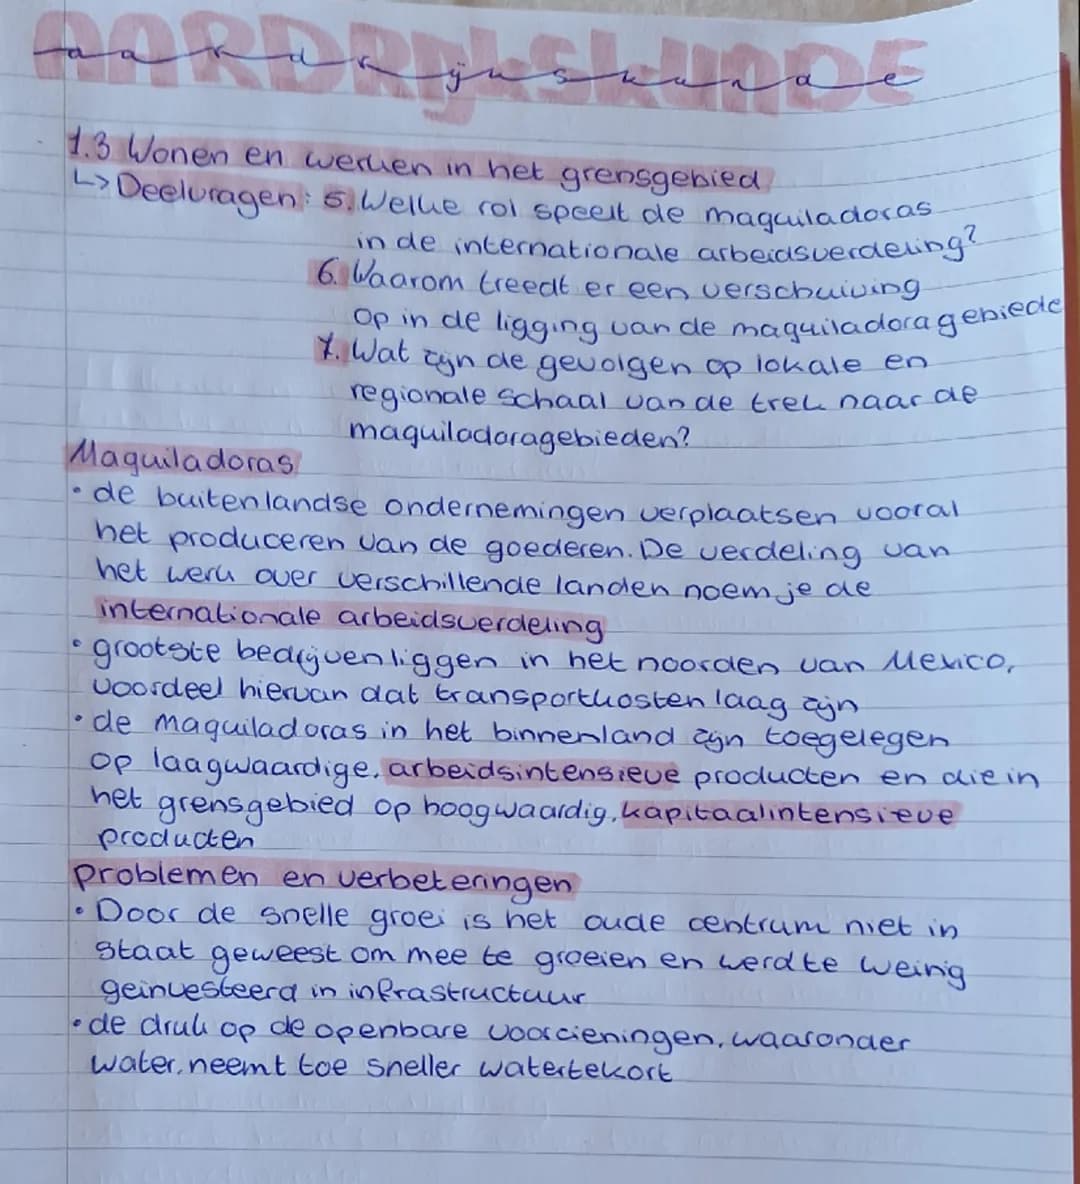 AARDRIJKSKUNDE
aardrijkskunde
1.3 Wonen en werken in het grensgebied
↳ Deelvragen: 5. Welke rol speelt de maquiladoras
in de internationale arbeidsverdeling?
6. Waarom treedt er een verschuiving
op in de ligging van de maquiladoragebiede
7. Wat zijn de gevolgen op lokale en
regionale schaal van de trek naar de
maquiladoragebieden?
Maquiladoras
• de buitenlandse ondernemingen verplaatsen vooral
het produceren van de goederen. De verdeling van
het werk over verschillende landen noem je de
internationale arbeidsverdeling
• grootste bedrijven liggen in het noorden van Mexico,
voordeel hiervan dat transportkosten laag zijn
• de maquiladoras in het binnenland zijn toegelegen
op laagwaardige, arbeidsintensieve producten en die in
het grensgebied op hoogwaardig, kapitaalintensieve
producten
problemen en verbeteringen
• Door de snelle groei is het oude centrum niet in
staat geweest om mee te groeien en werd te weinig
geinvesteerd in infrastructuur
• de druk op de openbare voorzieningen, waaronder
water, neemt toe sneller watertekort